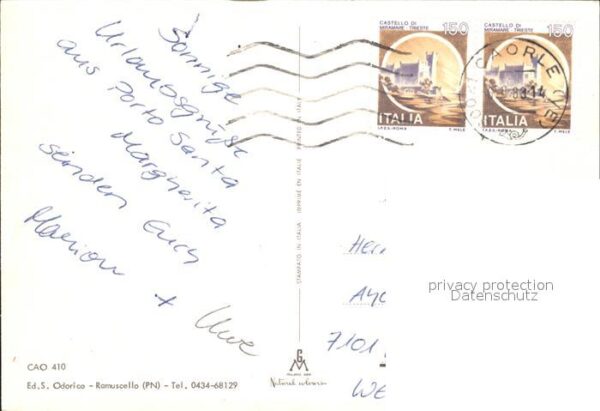 Sonnige
Urlaubsgrüße
aus Porto Santa
Margherita
senden Euch
Marion + Uwe
CAO 410
Ed. S. Odorico - Ramuscello (PN) - Tel. 0434-68129
STAMPATO IN ITALIA
PRINTED IN ITALY
Natural colorcrom
CASTELLO DI
MIRAMARE · TRIESTE
150
ITALIA
I.P.Z.S. - ROMA
CASTELLO DI
MIRAMARE · TRIESTE
150
ITALIA
I.P.Z.S. - ROMA
CAORLE (VE)
Her
7101
WE
privacy protection
Datenschutz